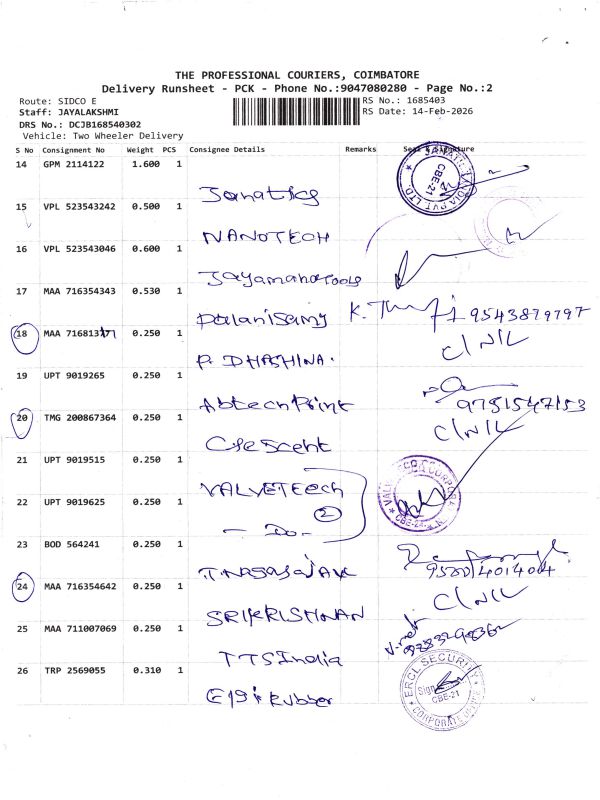 THE PROFESSIONAL COURIERS, COIMBATORE
Delivery Runsheet - PCK - Phone No.:9047080280 - Page No.:2
Route: SIDCO E
RS No.: 1685403
Staff: JAYALAKSHMI
RS Date: 14-Feb-2026
DRS No.: DCJB168540302
Vehicle: Two Wheeler Delivery
S No Consignment No Weight PCS Consignee Details Remarks Seal & Signature
14 GPM 2114122 1.600 1 Janatics
CBE-21
15 VPL 523543242 0.500 1 NANOTECH
16 VPL 523543046 0.600 1 Jayamaha Tools
17 MAA 716354343 0.530 1 Palanisamy K. 9543879797
18 MAA 716813 0.250 1 P. DHASHINA. C/N/L
19 UPT 9019265 0.250 1 Abtech Print 9751547153
20 TMG 200867364 0.250 1 Crescent C/N/L
21 UPT 9019515 0.250 1 VALVETEech
2
22 UPT 9019625 0.250 1 - Do -
CBE-21
23 BOD 564241 0.250 1
24 MAA 716354642 0.250 1 SRIKRISHNAN C/N/L
25 MAA 711007069 0.250 1 TTS India
26 TRP 2569055 0.310 1 Rubber
ERCL SECURITY
CBE-21
CORPORATE OFFICE